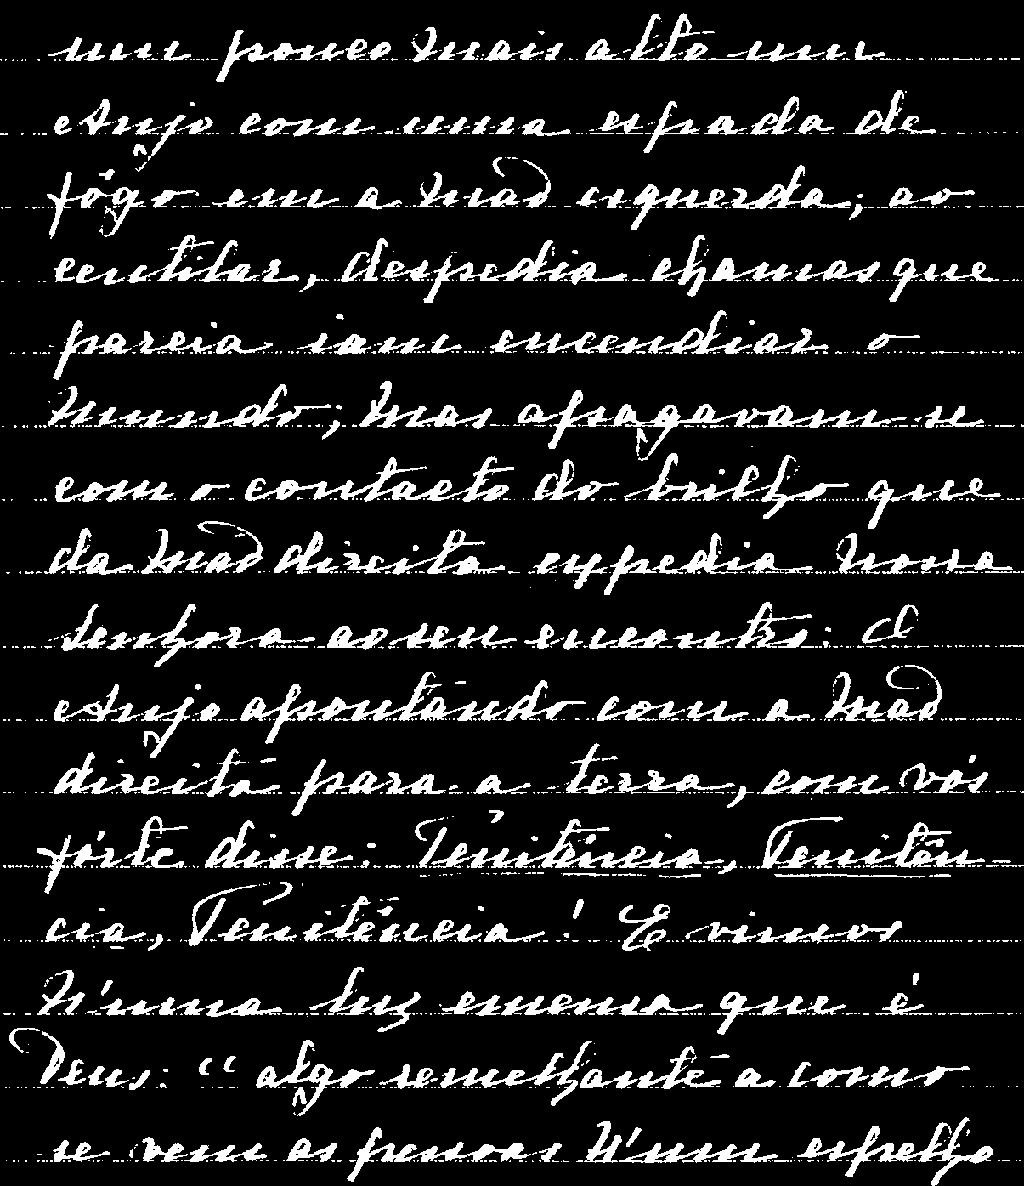 um pouco mais alto um
Anjo com uma espada de
fôgo em a mão esquerda; ao
centilar, despedia chamas que
pareia iam encendiar o
mundo; mas apagavam-se
com o contacto do brilho que
da mão direita expedia Nossa
Senhora ao seu encontro: O
Anjo apontando com a mão
direita para a terra, com vós
forte disse: Penitência, Peniten-
cia, Penitência! E vimos
n'uma luz emensa que é
Deus: "algo semelhante a como
se vem as pessoas n'um espelho